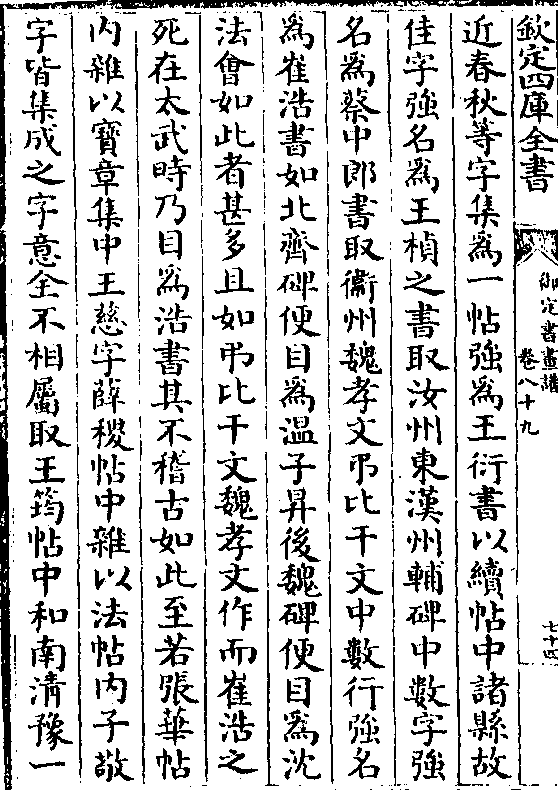 欽定四庫全書
御定書畫譜
卷八十九
七十四
近春秋等字集為一帖強為王衍書以續帖中諸縣故
佳字強名為王楨之書取汝州東漢州輔碑中數字強
名為蔡中郎書取衞州魏孝文弔比干文中數行強名
為崔浩書如北齊碑便目為溫子昇後魏碑便目為沈
法會如此者甚多且如弔比干文魏孝文作而崔浩之
死在太武時乃目為浩書其不稽古如此至若張華帖
内雜以寳章集中王慈字薛稷帖中雜以法帖内子敬
字皆集成之字意全不相屬取王筠帖中和南清豫一